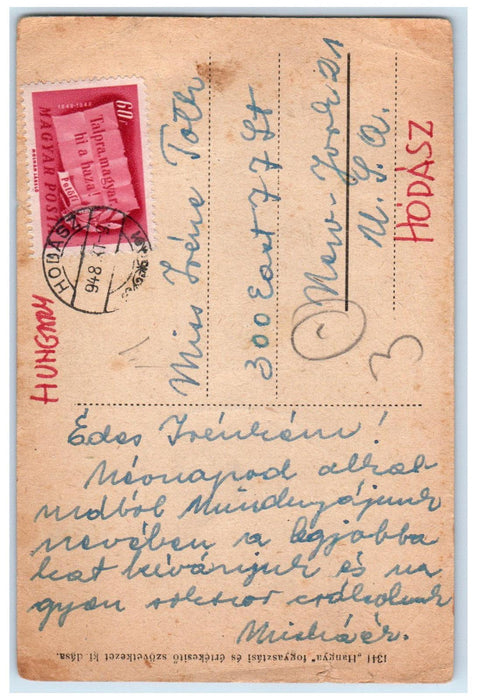 1848-1948
60f
Talpra magyar
hí a haza
Petőfi
MAGYAR POSTA
HODÁSZ
948 XI
HUNGARY
Miss Iréne Toth
300 East 77 St
New-York 21
U. S. A.
HÓDÁSZ
3
Édes Irénkém!
Névnapod alkal-
mából mindnyájunk
nevében a legjobba
kat kívánjuk és na
gyon sokszor csókolunk
1341 „Hangya" fogyasztási és értékesítő szövetkezet ki dása.